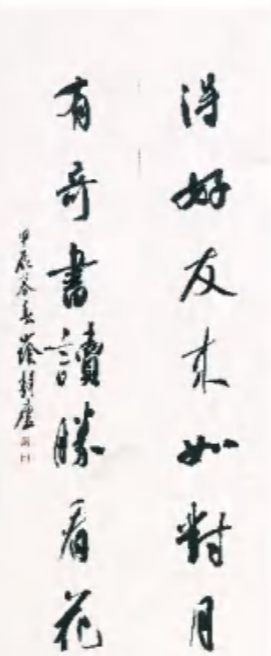 得好友来如對月
有奇書讀勝看花
甲辰